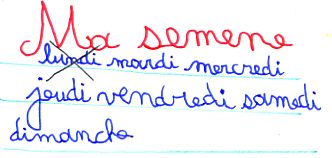 Ma semene
lundi mardi mercredi
jeudi vendredi samedi
dimanche